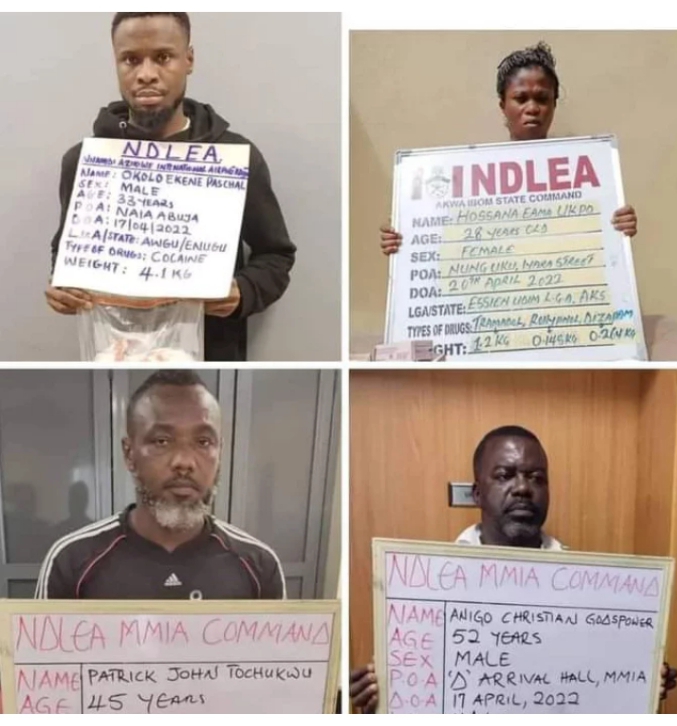 NDLEA
NNAMDI AZIKIWE INTERNATIONAL AIRPORT
NAME: OKOLO EKENE PASCHAL
SEX: MALE
AGE: 33 YEARS
P.O.A: NAIA ABUJA
D.O.A: 17/04/2022
L.G.A/STATE: AWGU/ENUGU
TYPE OF DRUGS: COCAINE
WEIGHT: 4.1 KG
NDLEA
AKWA IBOM STATE COMMAND
NAME: HOSSANA EAMO UKPO
AGE: 28 YEARS OLD
SEX: FEMALE
POA: NUNG UKU, STREET
DOA: 20TH APRIL 2022
LGA/STATE: ESSIEN UDIM L.G.A, AKS
TYPES OF DRUGS: TRAMADOL,
GHT: 1.2 KG 0.145KG
NDLEA MMIA COMMAND
NAME PATRICK JOHN TOCHUKWU
AGE 45 YEARS
NDLEA MMIA COMMAND
NAME ANIGO CHRISTIAN GODSPOWER
AGE 52 YEARS
SEX MALE
P.O.A 'D' ARRIVAL HALL, MMIA
D.O.A 17 APRIL, 2022
adidas